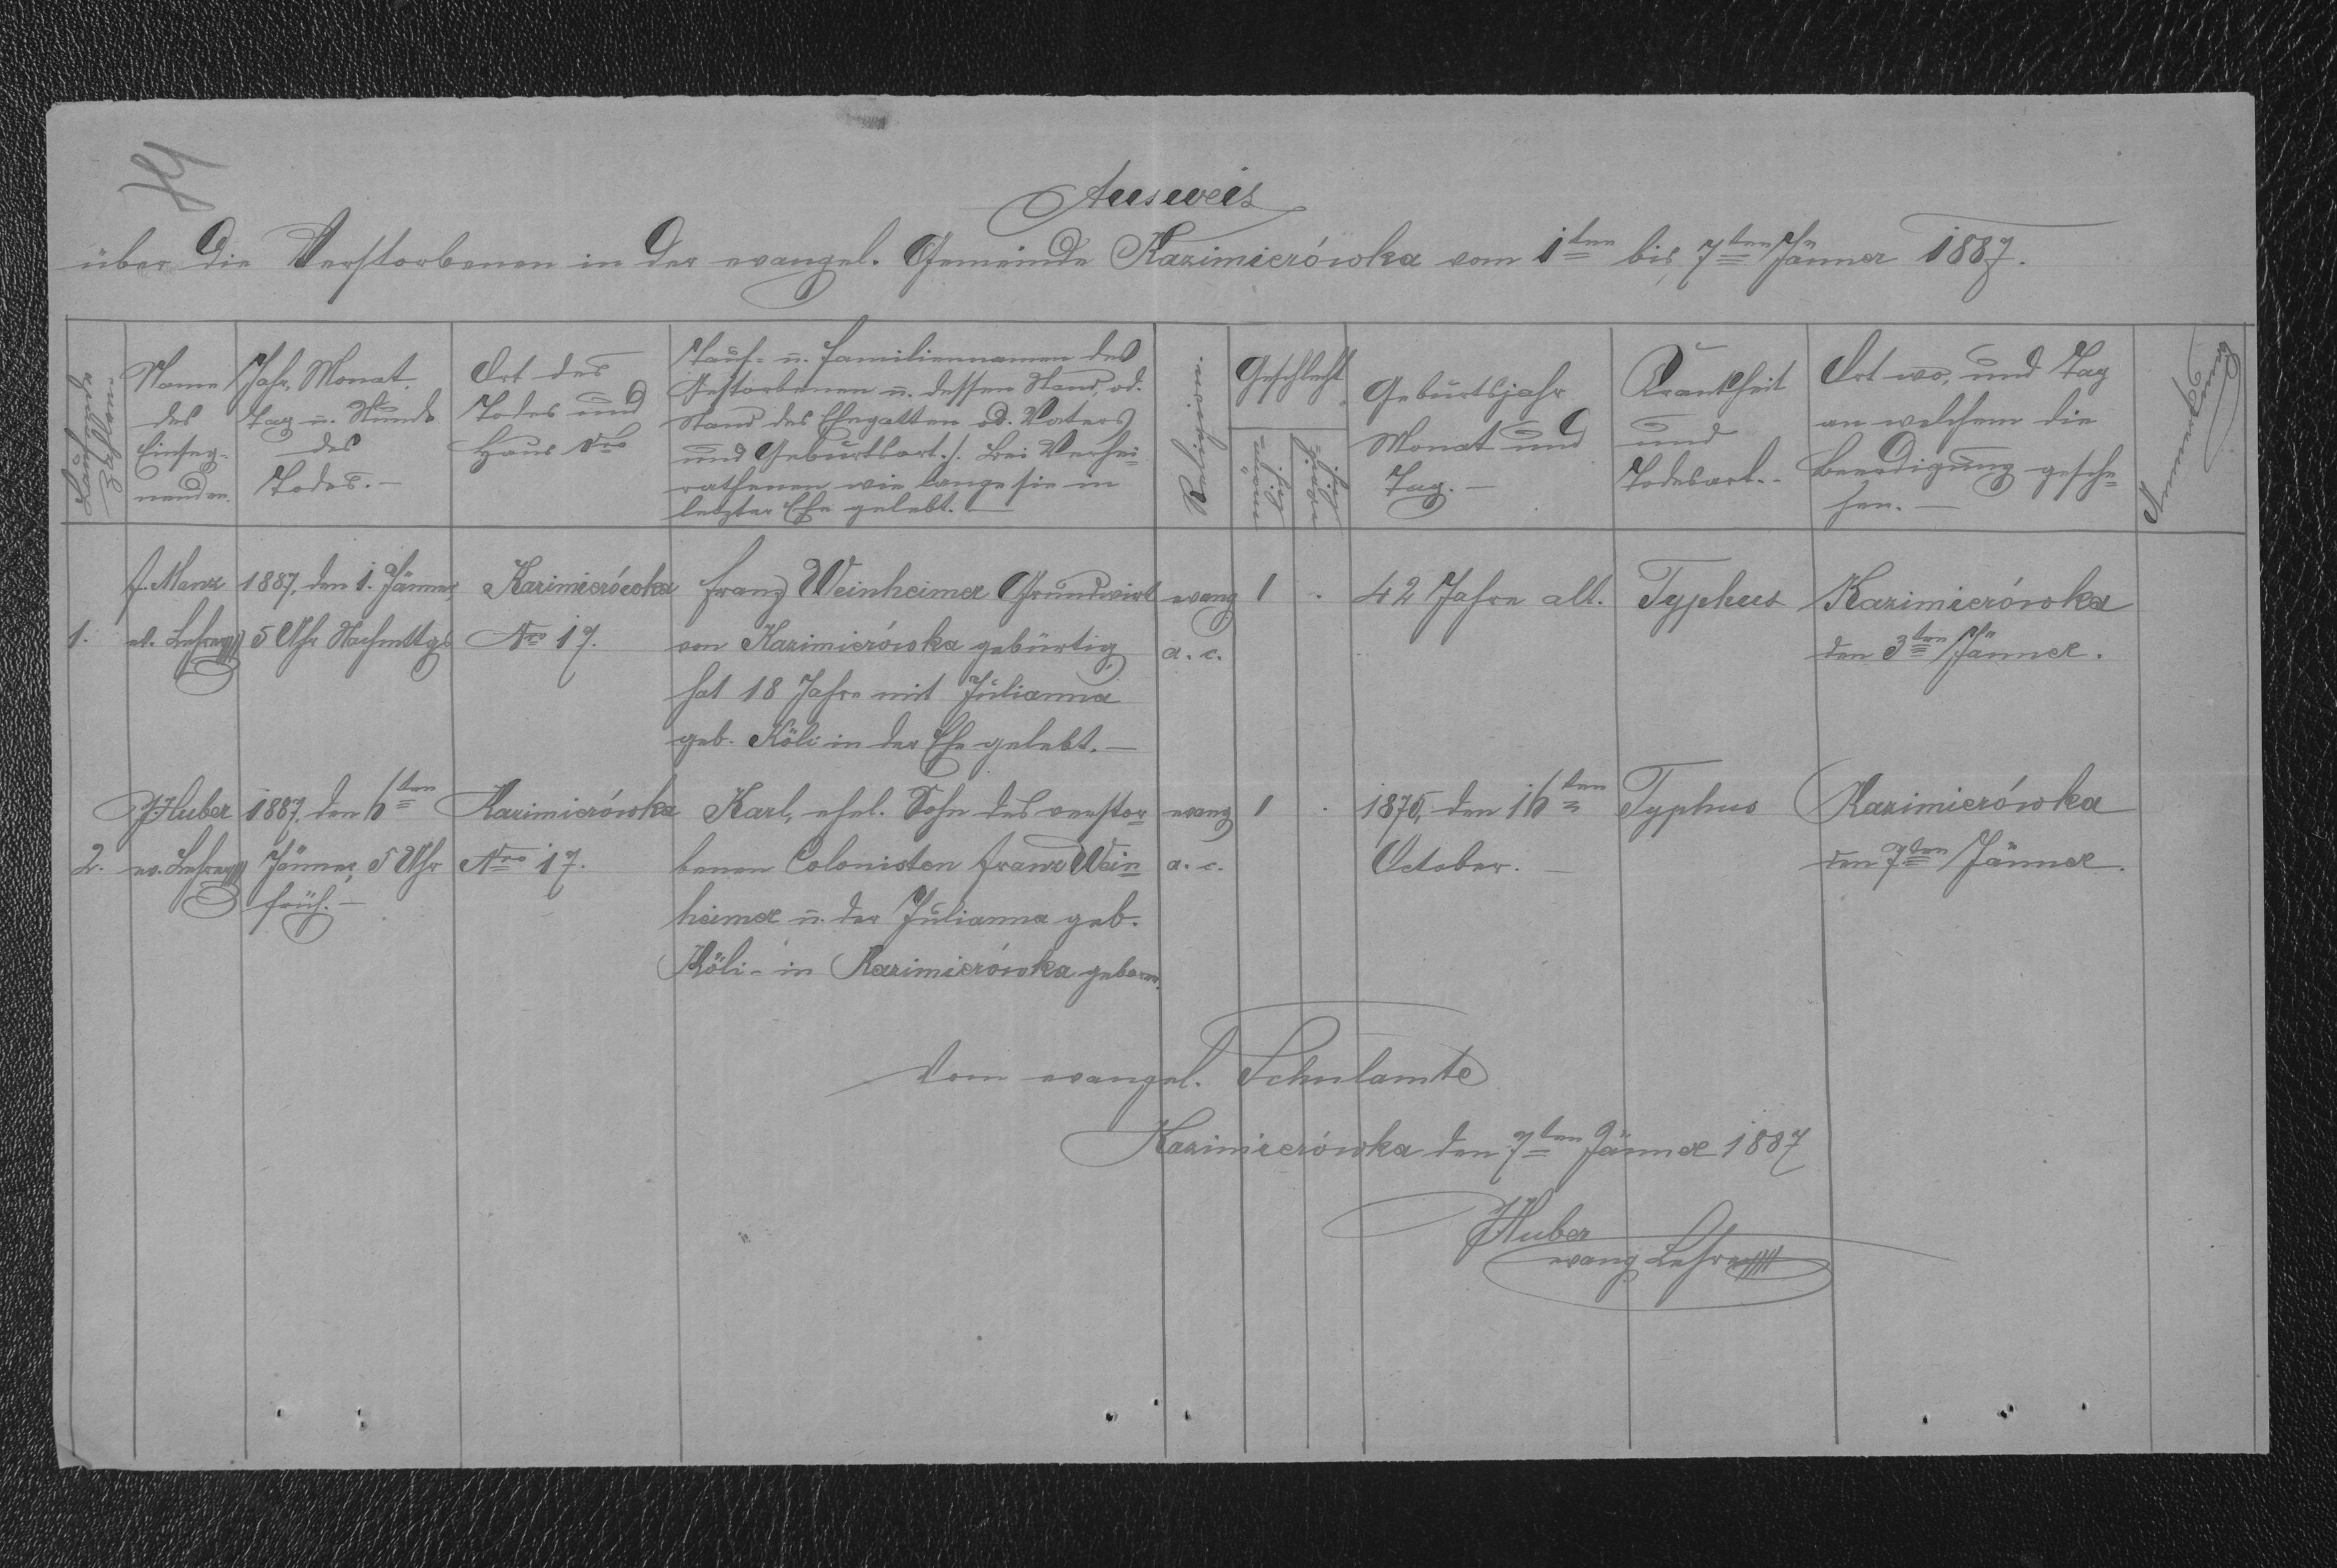 Ausweis
über die Verstorbenen in der evangel. Gemeinde Kazimierówka vom 1ten bis 7ten Jänner 1887.
Laufende Zahlen
Name des Einseg-nenden.
Jahr, Monat, Tag u. Stunde des Todes.—
Ort des Todes und Haus Nro
Tauf- u. Familiennamen des
Gestorbenen u. dessen Stand, od.
Stand des Ehegatten od. Vaters
und Geburtsort./. Bei Verhei-
rathenen wie lange sie in
letzter Ehe gelebt.—
Religion.
Geschlecht
männlich
weiblich
Geburtsjahr
Monat und
Tag.—
Krankheit
und
Todesart.-
Ort wo, und Tag
an welchem die
Beerdigung gesche-
hen.—
Anmerkung
1.
f. Manz
ev. Lehrer
1887, den 1. Jänner,
5 Uhr Nachmttgs
Kazimierówka
Nro 17.
Franz Weinheimer Grundwirt
von Kazimierówka gebürtig,
hat 18 Jahre mit Julianna
geb. Köli in der Ehe gelebt.—
evang.
a. c.
1 .
42 Jahre alt.
Typhus
Kazimierówka
den 3ten Jänner.
2.
JHuber
ev. Lehrer
1887, den 6ten
Jänner, 5 Uhr
früh.—
Kazimierówka
Nro 17.
Karl, ehel. Sohn des verstor-
benen Colonisten Franz Wein
heimer u. der Julianna geb.
Köli - in Kazimierówka geboren.
evang
a. c.
1 .
1875, den 16ten
October.—
Typhus
Kazimierówka
den 7ten Jänner.
Vom evangel. Schulamte
Kazimierówka den 7ten Jänner 1887
JHuber
evang Lehrer